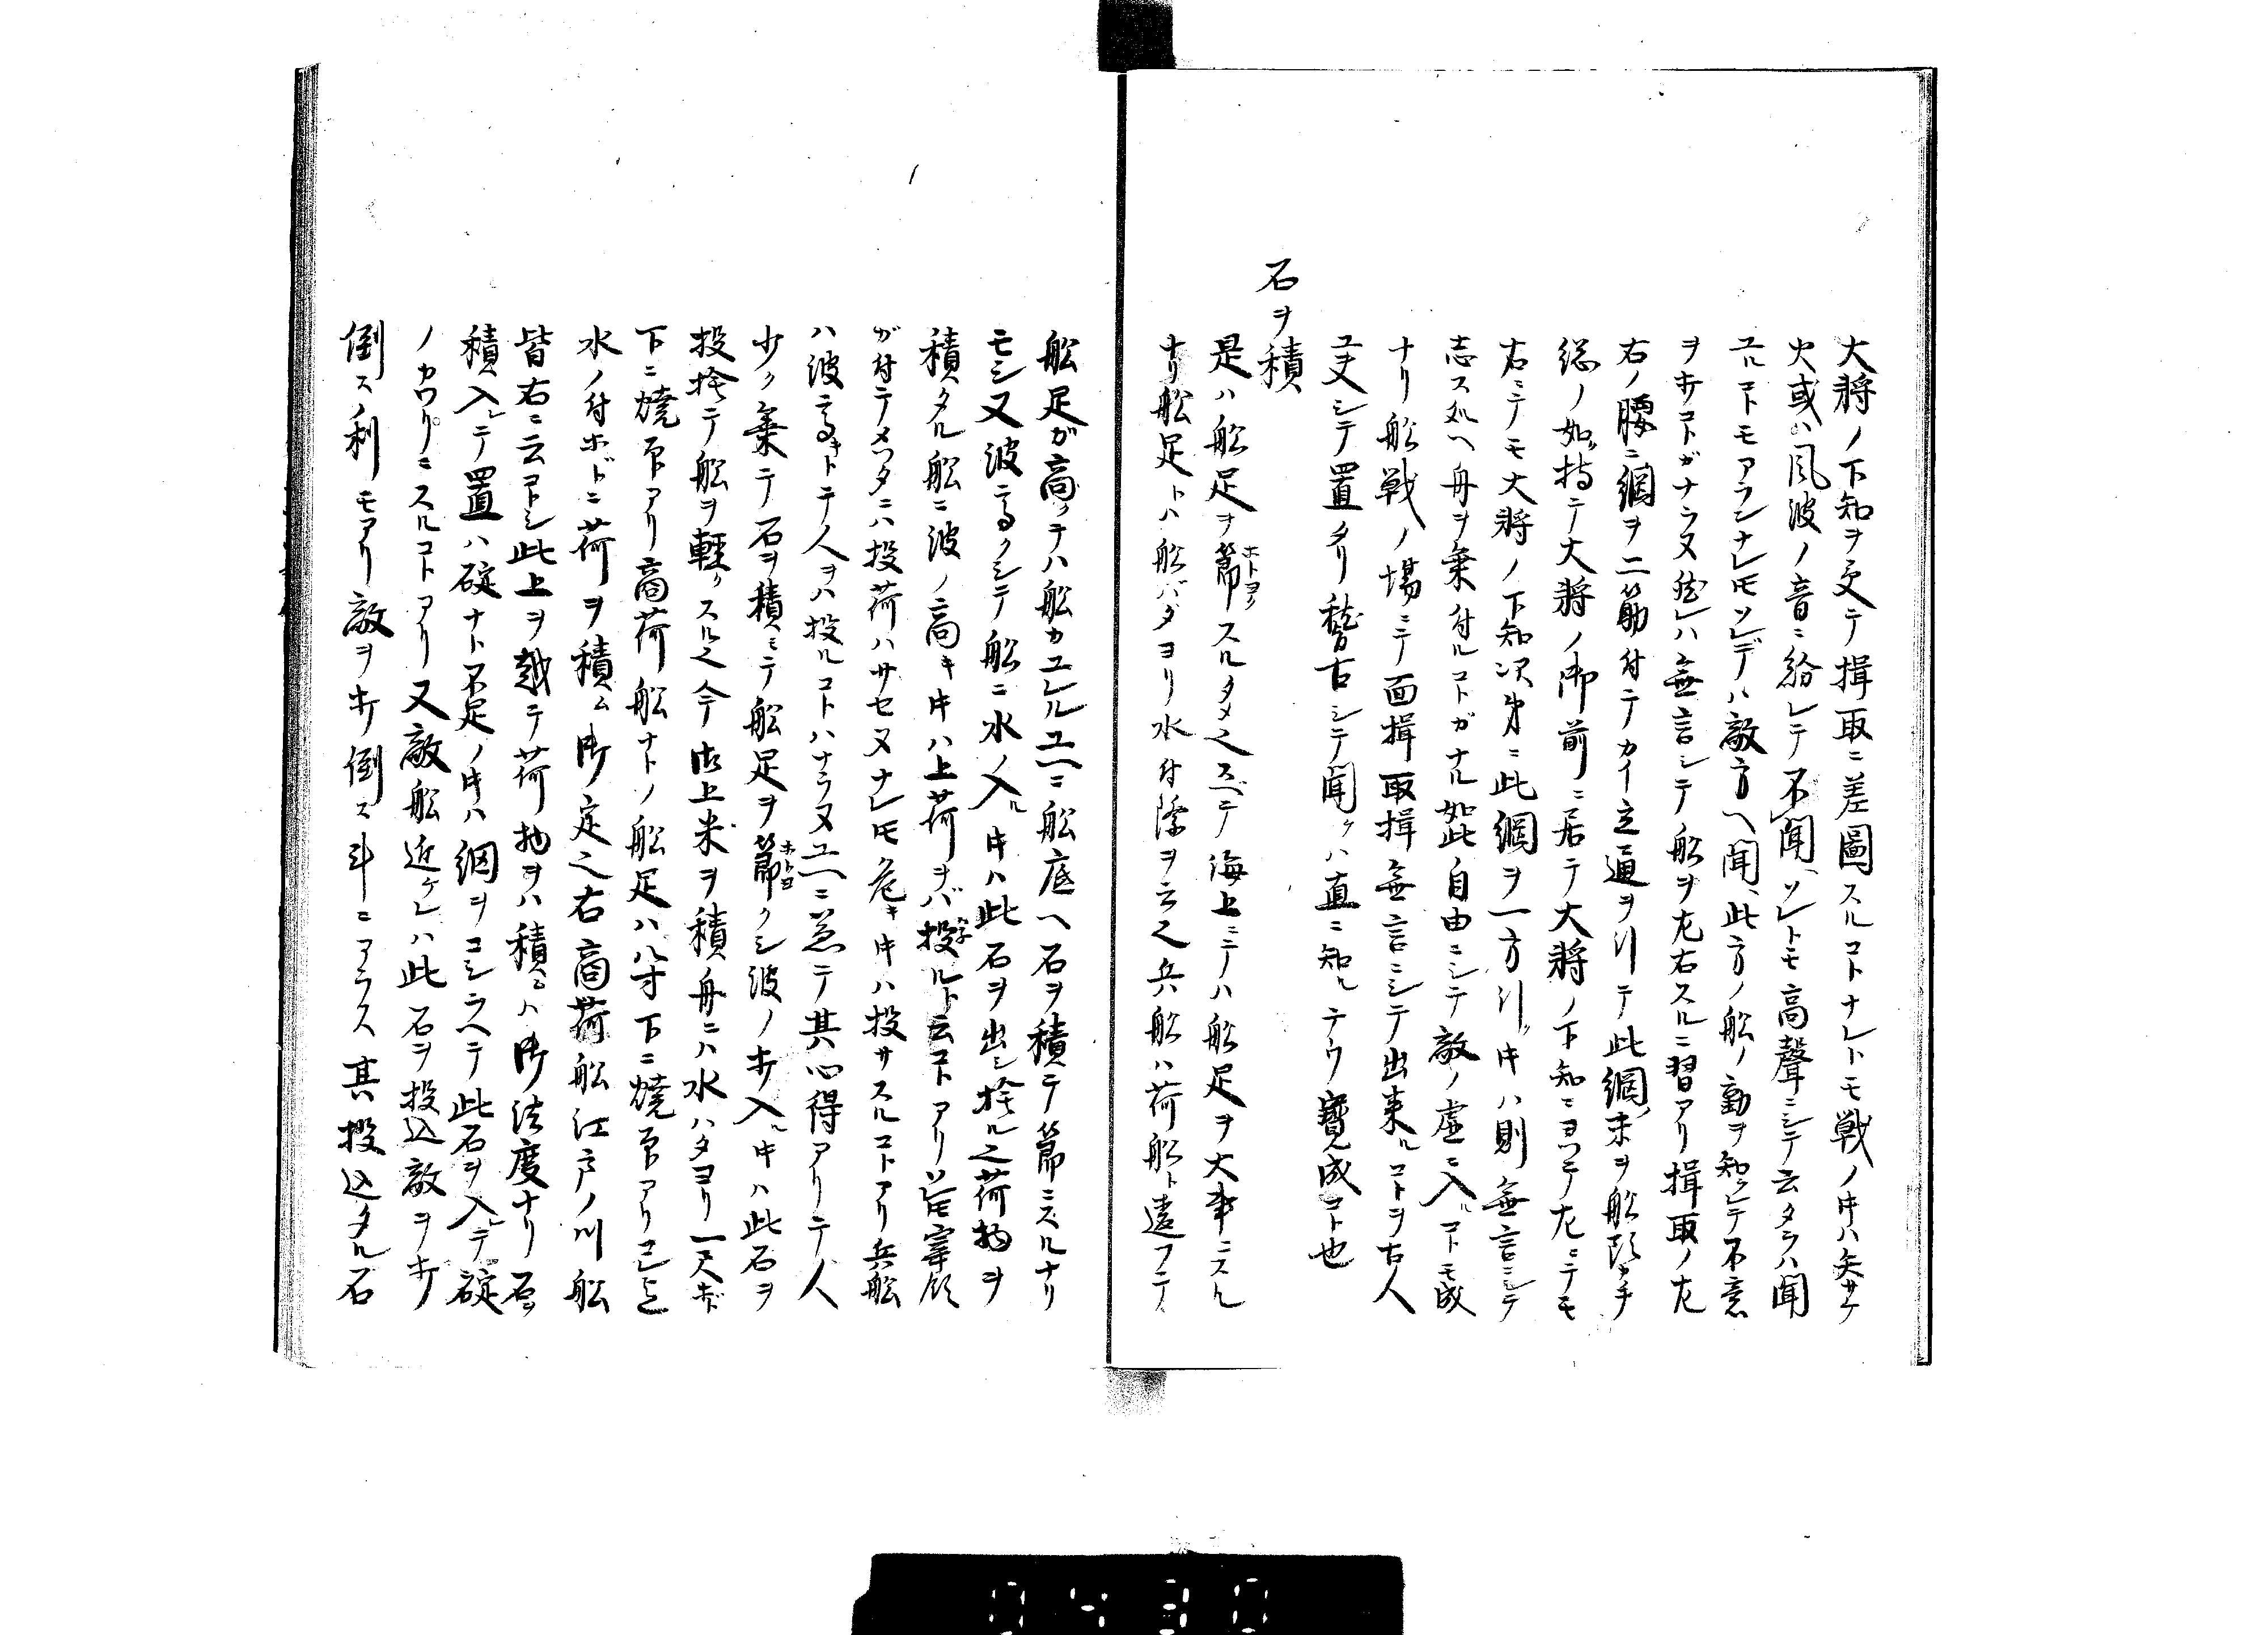 大将ノ下知ヲ受テ揖取ニ差圖スルコトナレトモ戦ノ時ハ矢サケ
火或ハ風波ノ音ニ紛レテ不聞、ソレトモ高聲ニシテ云タラハ聞
ユルコトモアランナレ𪜈ソレデハ敵方ヘ聞、此方ノ船ノ動ヲ知レテ不意
ヲ打コトガナラヌ然レハ無言シテ船ヲ左右スルニ習アリ揖取ノ左
右ノ腰ニ綱ヲ二筋付テカイ立通ヲ引テ此綱ノ末ヲ船頭ガ手
綱ノ如ク持テ大将ノ御前ニ居テ大将ノ下知ニヨツテ左ニテモ
右ニテモ大将ノ下知次第ニ此綱ヲ一方引ク時ハ則無言ニシテ
志ス処ヘ舟ヲ乗付ルコトガナル如此自由ニシテ敵ノ虚ニ入ルコトモ成
ナリ船戦ノ場ニテ面揖取揖無言ニシテ出来ルコトヲ古人
工夫シテ置タリ稽古シテ聞クハ直ニ知レテウ寶成コト也
石ヲ積
是ハ船足ヲ節ホトヨクスルタメ之スベテ海上ニテハ船足ヲ大事ニスル
ナリ船足トハ船バタヨリ水付際ヲ云之兵船ハ荷船ト違フテ
船足ガ高クテハ船カユレルユヘニ船底ヘ石ヲ積テ節ニスルナリ
モシ又波高クシテ船ニ水ノ入ル時ハ此石ヲ出シ捨ル之荷物ヲ
積タル船ニ波ノ高キ時ハ上荷ヲバ投ルト云コトアリソレ𪜈宰領
ガ付テメツタニハ投荷ハサセヌナレ𪜈危キ時ハ投サスルコトアリ兵船
ハ波高キトテ人ヲハ投ルコトハナラヌユヘニ兼テ其心得アリテ人
少ク乗テ石ヲ積ミテ船足ヲ節ホトヨクシ波ノ打入ル時ハ此石ヲ
投捨テ船ヲ軽クスル之今御上米ヲ積舟ニハ水ハタヨリ一尺ホド
下ニ焼印アリ商荷船ナトノ船足ハ八寸下ニ焼印アリコレ迄
水ノ付ホドニ荷ヲ積ム御定之右商荷船江戸ノ川船
皆右ニ云コトシ此上ヲ越テ荷物ヲハ積ヌハ御法度ナリ石ヲ
積入レテ置ハ碇ナト不足ノ時ハ綱ヲコシラヘテ此石ヲ入レテ碇
ノカワリニスルコトアリ又敵船近ケレハ此石ヲ投込敵ヲ打
倒スノ利モアリ敵ヲ打倒ス斗ニアラス其投込タル石